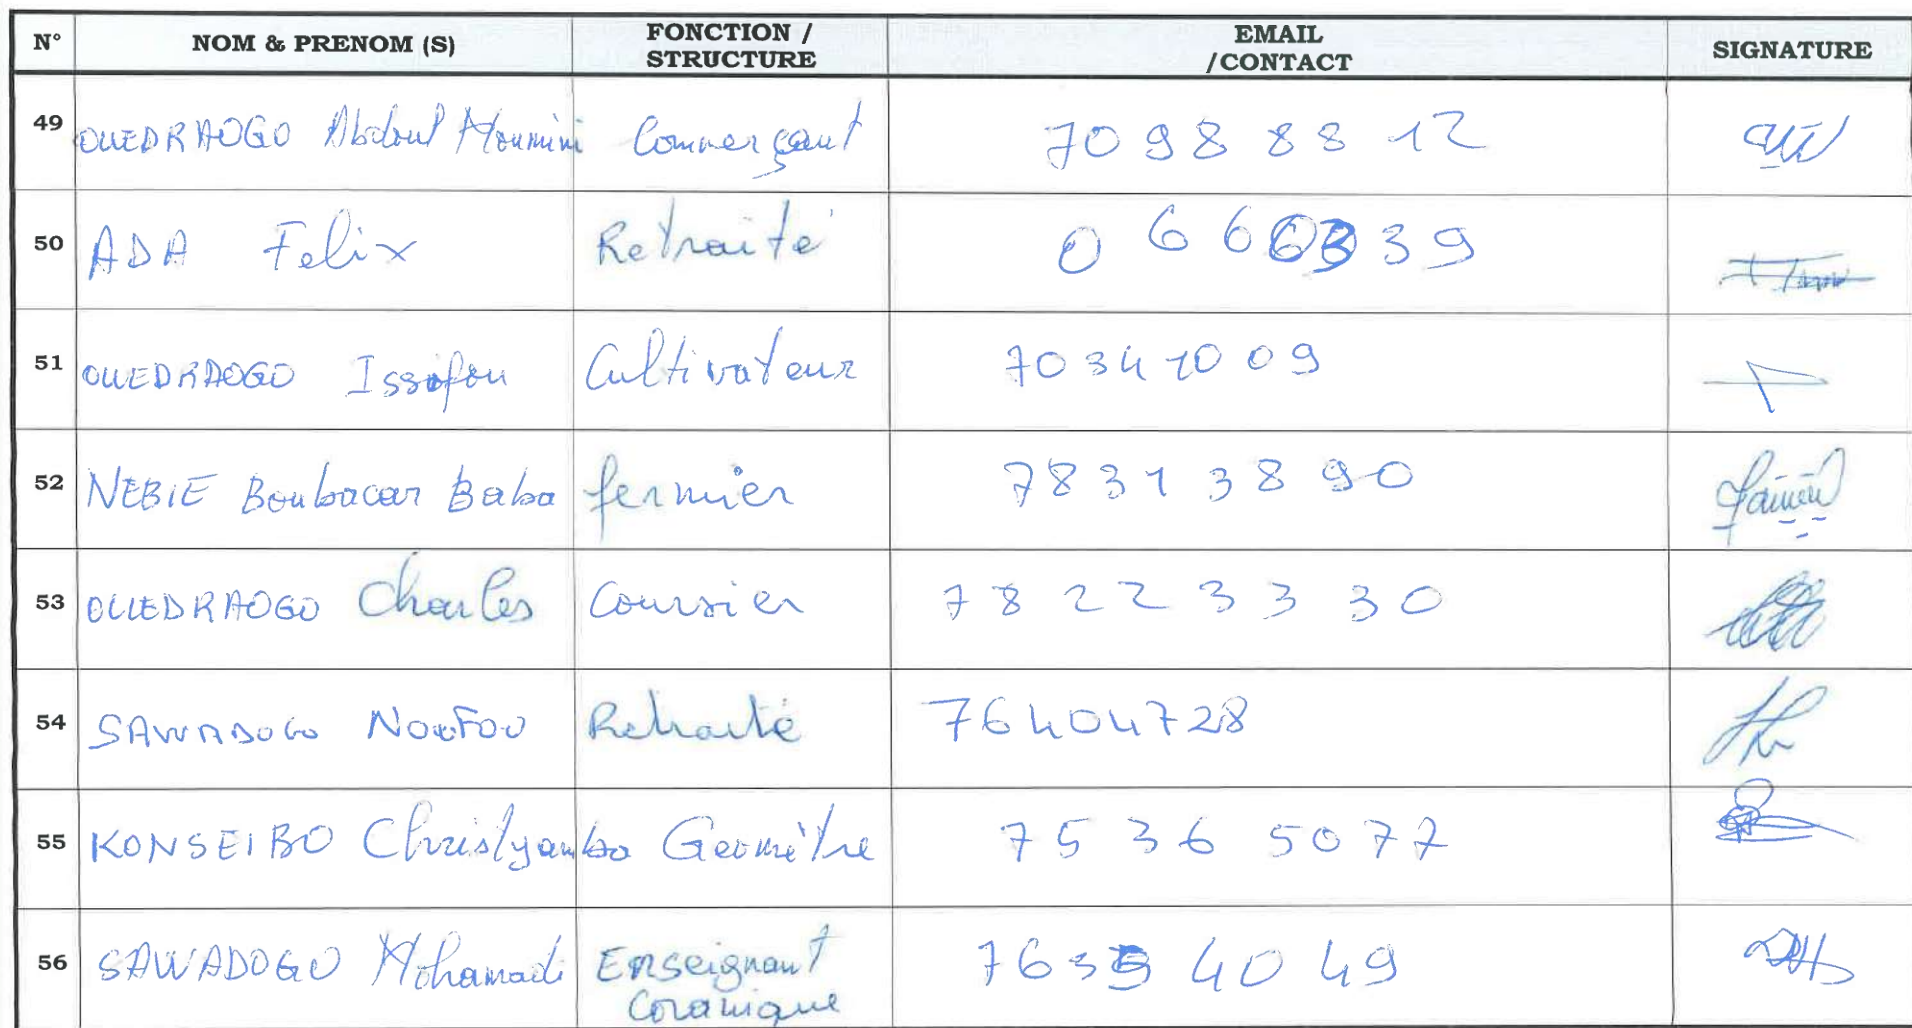 N° NOM & PRENOM (S) FONCTION / STRUCTURE EMAIL /CONTACT SIGNATURE
49 OUEDRAOGO Abdoul Moumini Commerçant 70 98 88 12
50 ADA Felix Retraité 0 6 6 6 3 3 9
51 OUEDRAOGO Issofou Cultivateur 70 34 10 09
52 NEBIE Boubacar Baba fermier 78 31 38 90
53 OUEDRAOGO Charles Coursier 78 22 33 30
54 SAWADOGO NOUFOU Retraité 76404728
55 KONSEIBO Christyamba Geomètre 75 36 50 77
56 SAWADOGO Mohamadi Enseignant 76 35 40 49
Coranique